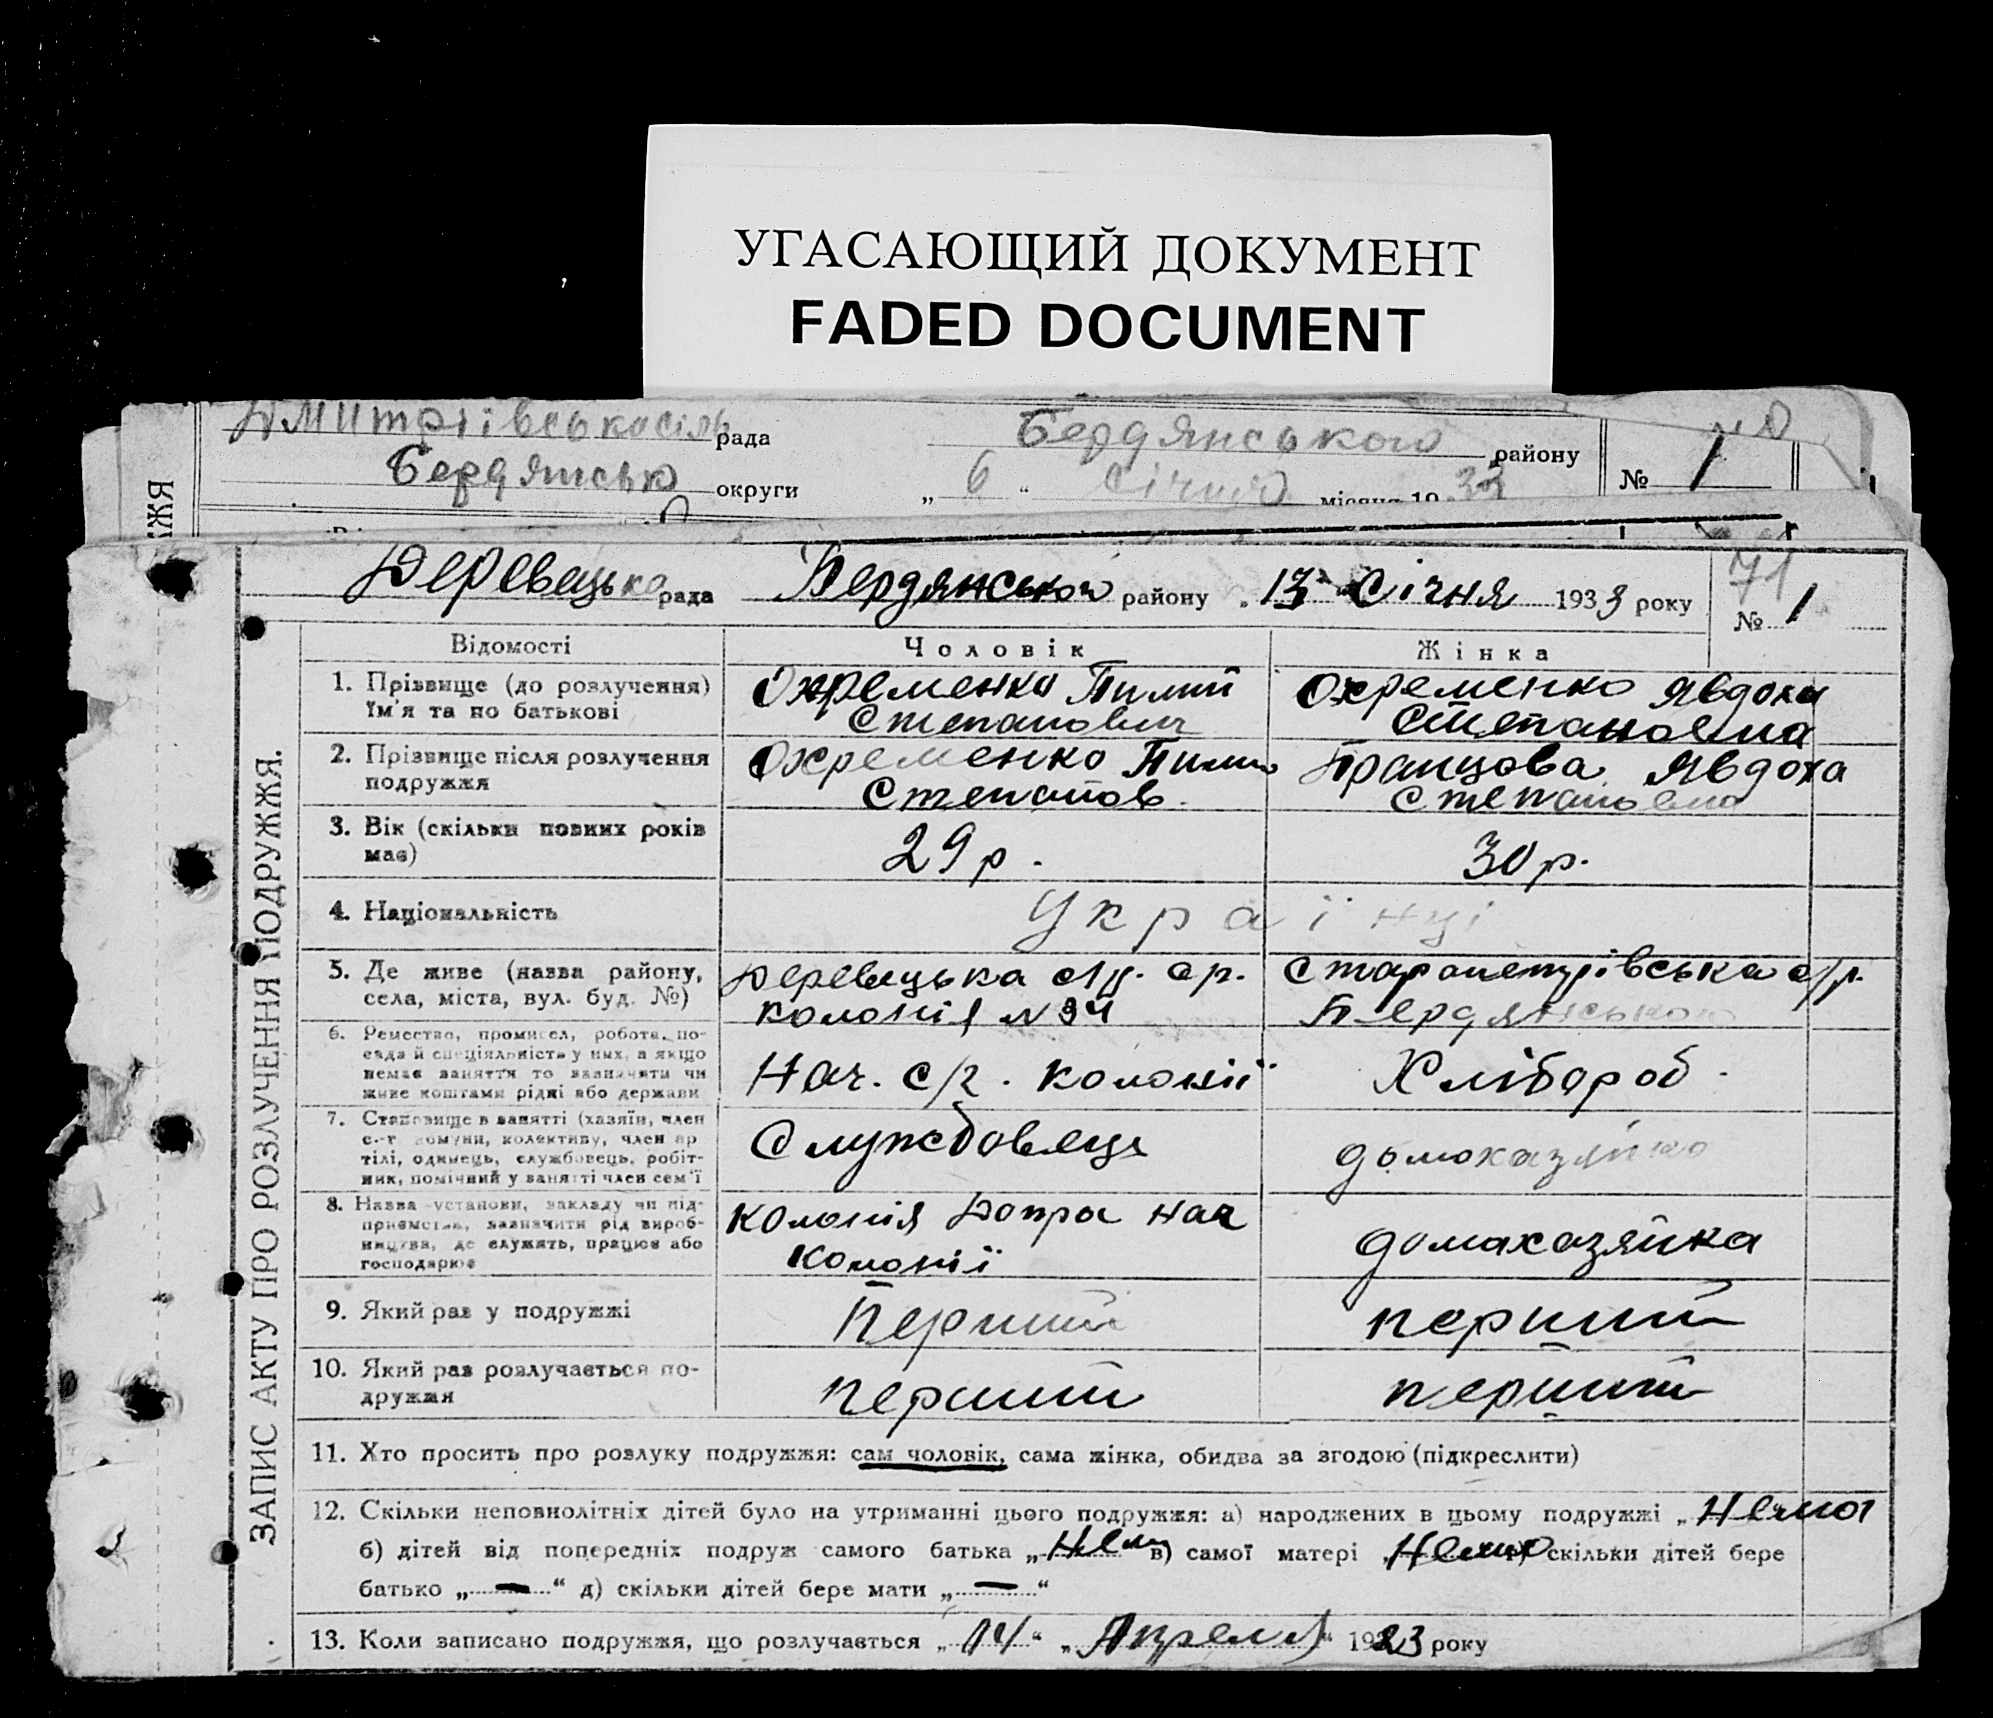 УГАСАЮЩИЙ ДОКУМЕНТ
FADED DOCUMENT
рада Бердянського району
Бердянсько округи „ 6 “ Січня місяця 19 33 № 1
ЖЖЯ
71
Деревецька рада Бердянськой району „ 13 “ Січня 1933 року № 1
ЗАПИС АКТУ ПРО РОЗЛУЧЕННЯ ПОДРУЖЖЯ.
Відомості Чоловік Жінка
1. Прізвище (до розлучення) Охременко Охременко Явдоха
ім'я та по батькові Степанович Степановна
2. Прізвище після розлучення Охременко Явдоха
подружжя Степанов. Степановна
3. Вік (скільки повних років 29 р. 30 р.
має)
4. Національність Українці
5. Де живе (назва району, Деревецька с/р. Старопетрівська с/р.
села, міста, вул. буд. №) колонія N 94 Бердянського
6. Ремество, промисел, робота, по-
сада й спеціяльність у них, а якщо Нач. с/г. колонії Хлібороб
немає заняття то зазначити чи
живе коштами рідні або держави
7. Становище в занятті (хазяїн, член Службовець домохазяйка
с.-г комуни, колективу, член ар
тілі, одинець, службовець, робіт-
ник, помічний у занятті член сем'ї
8. Назва установи, закладу чи під- колонія Допра нач
приємства, зазначити рід вироб- колонії домахазяйка
ництва, де служить, працює або
господарює
9. Який раз у подружжі Перший перший
10. Який раз розлучається по- перший перший
дружжя
11. Хто просить про розлуку подружжя: сам чоловік, сама жінка, обидва за згодою (підкреслити)
12. Скільки неповнолітніх дітей було на утриманні цього подружжя: а) народжених в цьому подружжі „ Нема
б) дітей від попередніх подруж самого батька „ Нема в) самої матері „ Нема г) скільки дітей бере
батько „ — “ д) скільки дітей бере мати „ — “
13. Коли записано подружжя, що розлучається „ 14 “ „ Апреля “ 1923 року